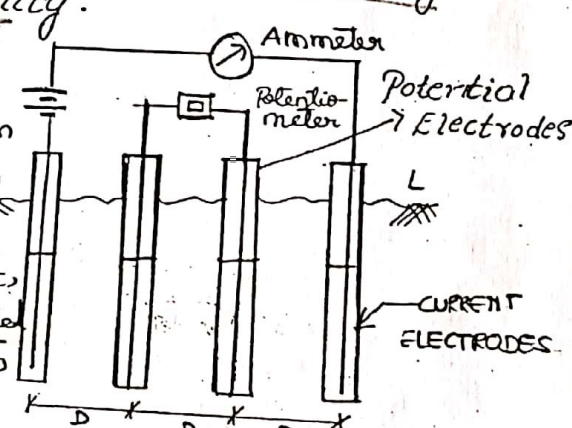 Ammeter
Potential
Potentio-
meter
Electrodes
L
CURRENT
ELECTRODES
D
D
D